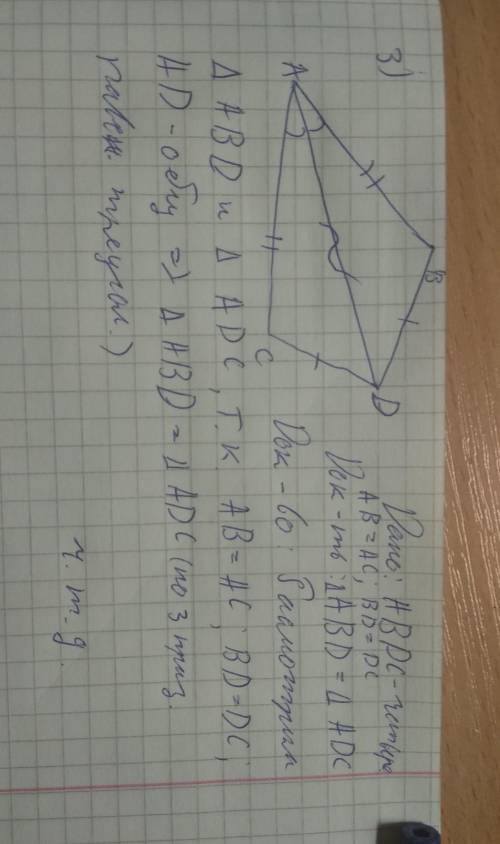 3)
A
B
C
D
Дано: ABDC - четыре
AB = AC; BD = DC
Док-ть: ΔABD = Δ ADC
Док-во: Рассмотрим
Δ ABD и Δ ADC, т.к. AB = AC; BD = DC;
AD - общ => Δ ABD = Δ ADC (по 3 приз.
равен. треугол.)
ч. т. д.